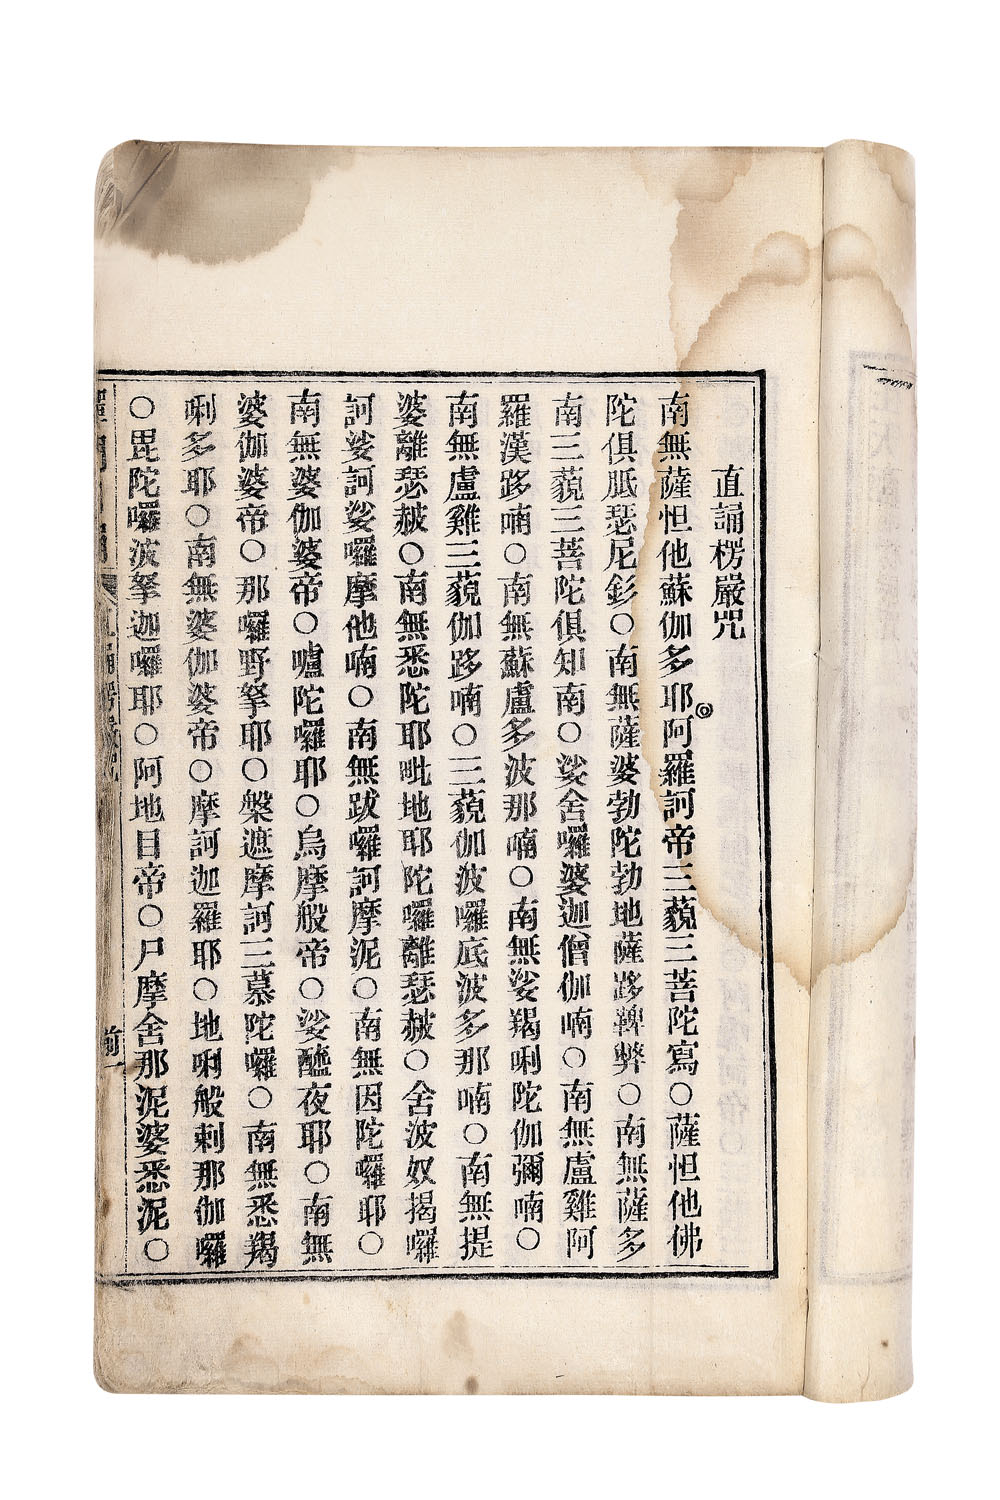 直誦楞嚴咒
南無薩怛他蘇伽多耶阿羅訶帝三藐三菩陀寫○薩怛他佛
陀俱胝瑟尼釤○南無薩婆勃陀勃地薩跢鞞弊○南無薩多
南三藐三菩陀俱知南○娑舍囉婆迦僧伽喃○南無盧雞阿
羅漢跢喃○南無蘇盧多波那喃○南無娑羯唎陀伽彌喃○
南無盧雞三藐伽跢喃○三藐伽波囉底波多那喃○南無提
婆離瑟赧○南無悉陀耶毗地耶陀囉離瑟赧○舍波奴揭囉
訶娑訶娑囉摩他喃○南無跋囉訶摩泥○南無因陀囉耶○
南無婆伽婆帝○嚧陀囉耶○烏摩般帝○娑醯夜耶○南無
婆伽婆帝○那囉野拏耶○槃遮摩訶三慕陀囉○南無悉羯
唎多耶○南無婆伽婆帝○摩訶迦羅耶○地唎般剌那伽囉
○毘陀囉波拏迦囉耶○阿地目帝○尸摩舍那泥婆悉泥○